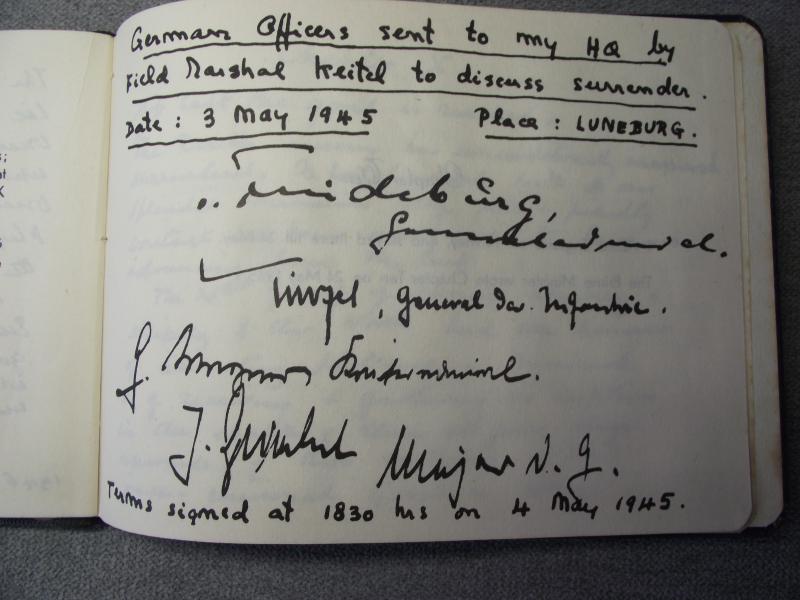 German Officers sent to my HQ by
Field Marshal Keitel to discuss surrender.
Date: 3 May 1945 Place: LUNEBURG.
v. Friedeburg,
Generaladmiral.
Kinzel, General der Infantrie.
G. Wagner Konteradmiral.
J. Friedel Major i. G.
Terms signed at 1830 hrs on 4 May 1945.